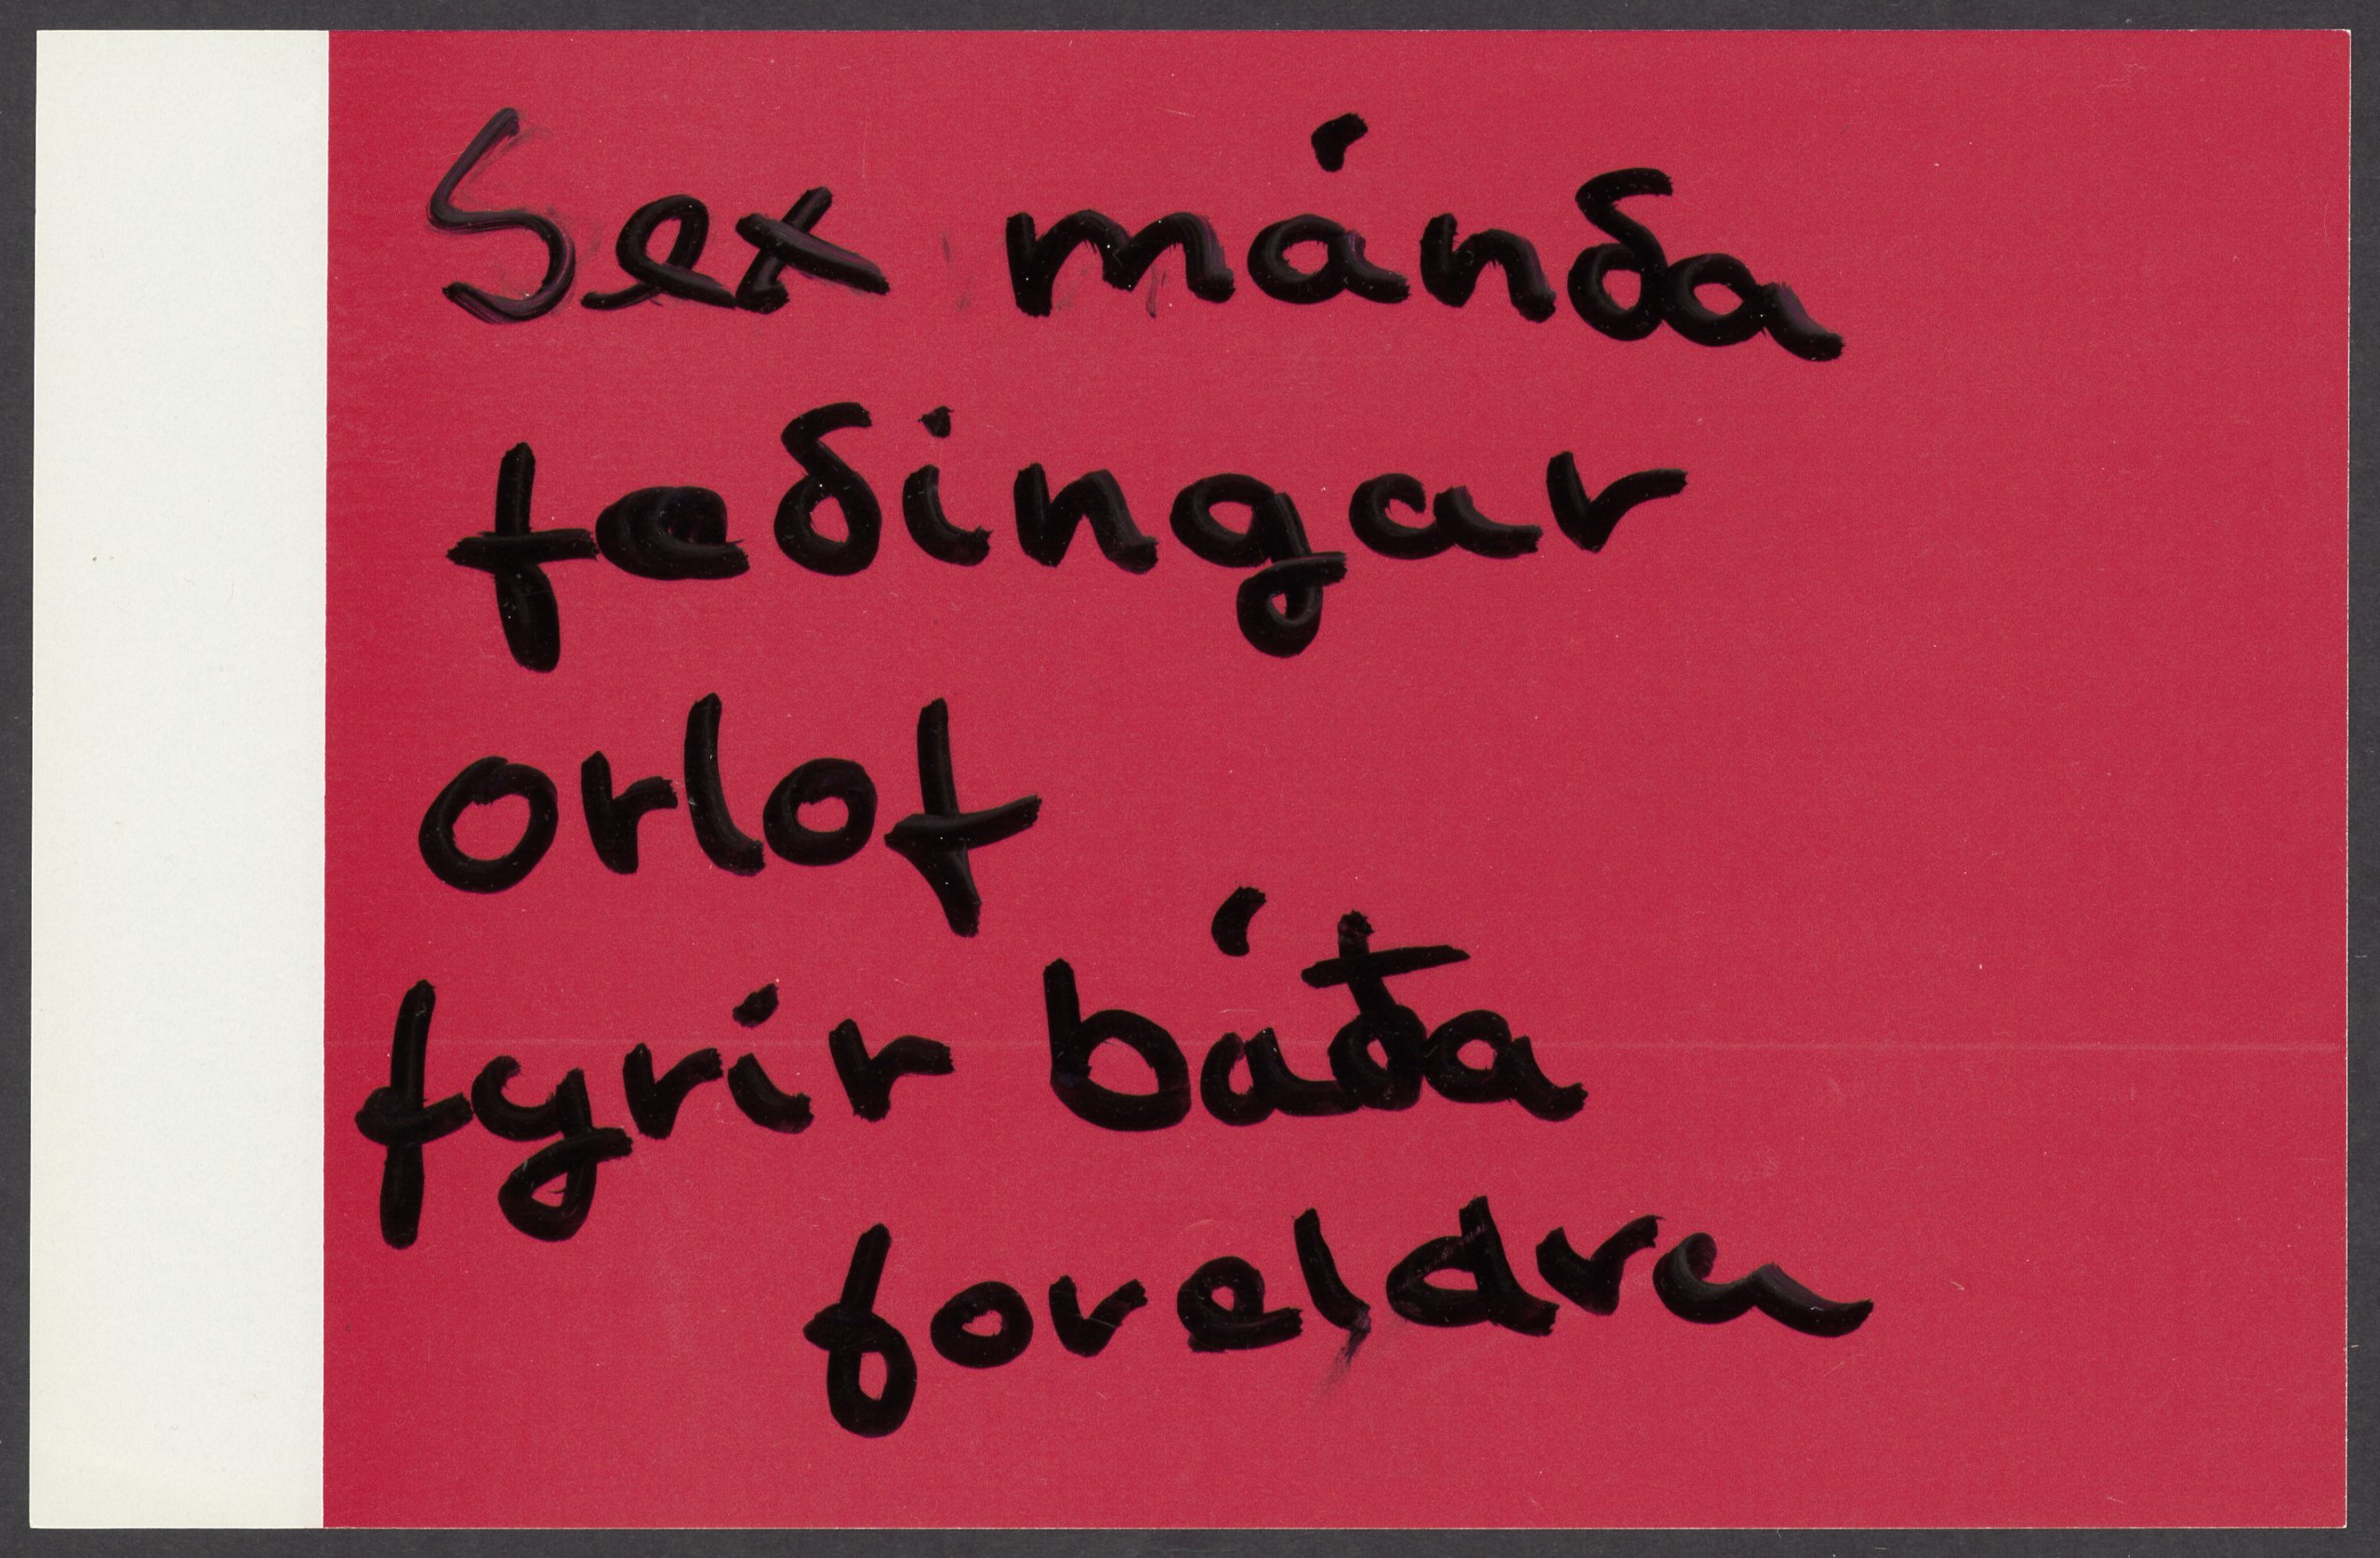 Sex mánða
fæðingar
orlof
fyrir báða
foreldra